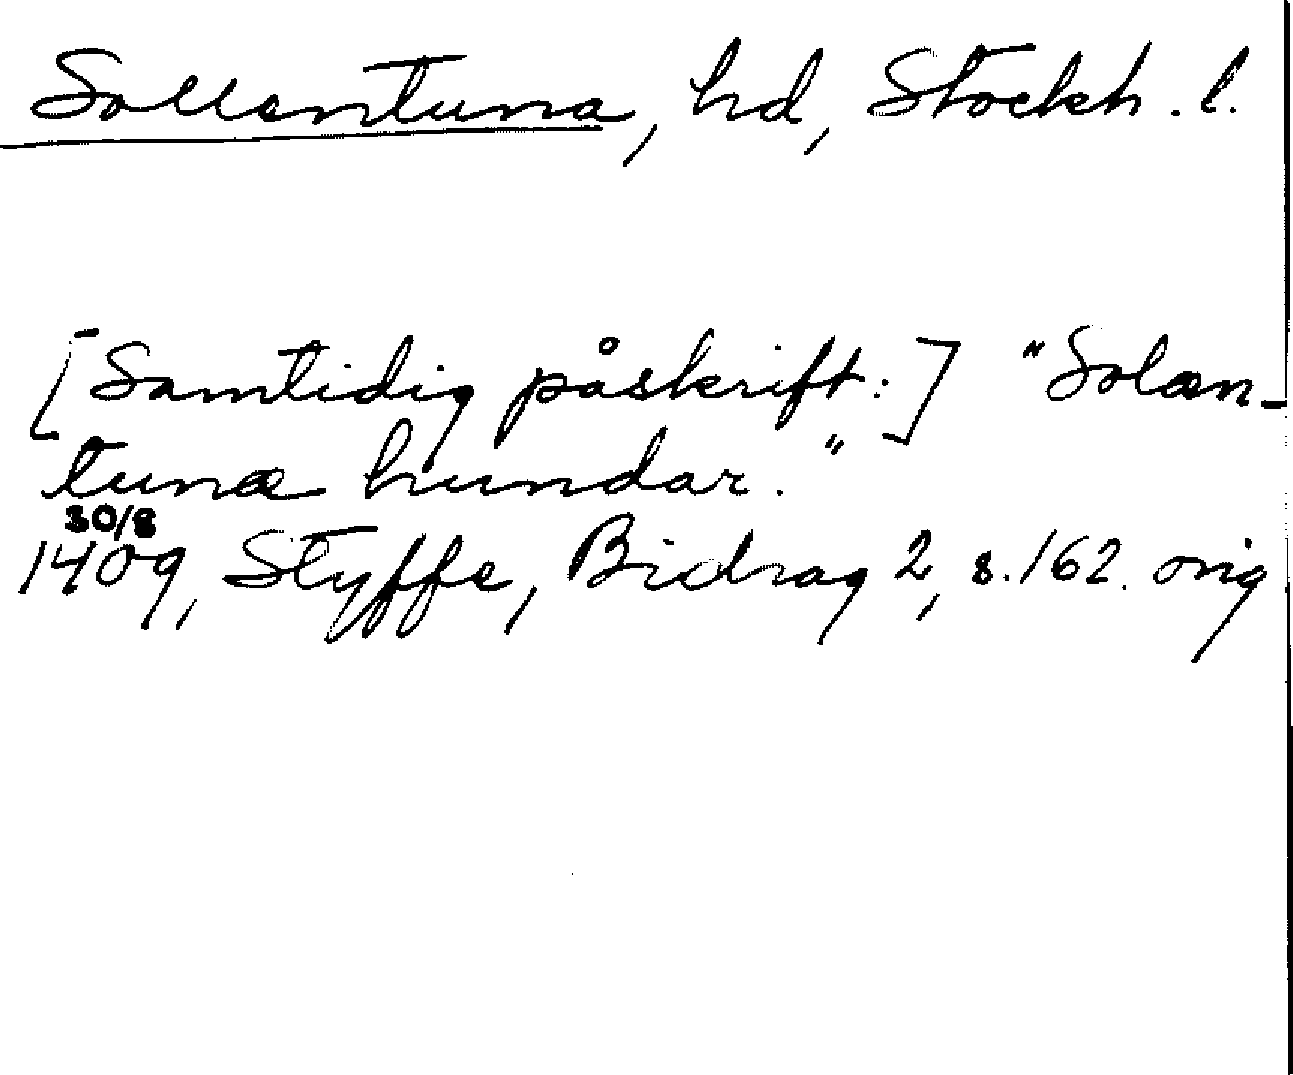 Sollentuna, hd, Stockh. l.
[Samtidig påskrift:] "Solæn-
tunæ hundar."
30/8
1409, Styffe, Bidrag 2, s. 162. orig